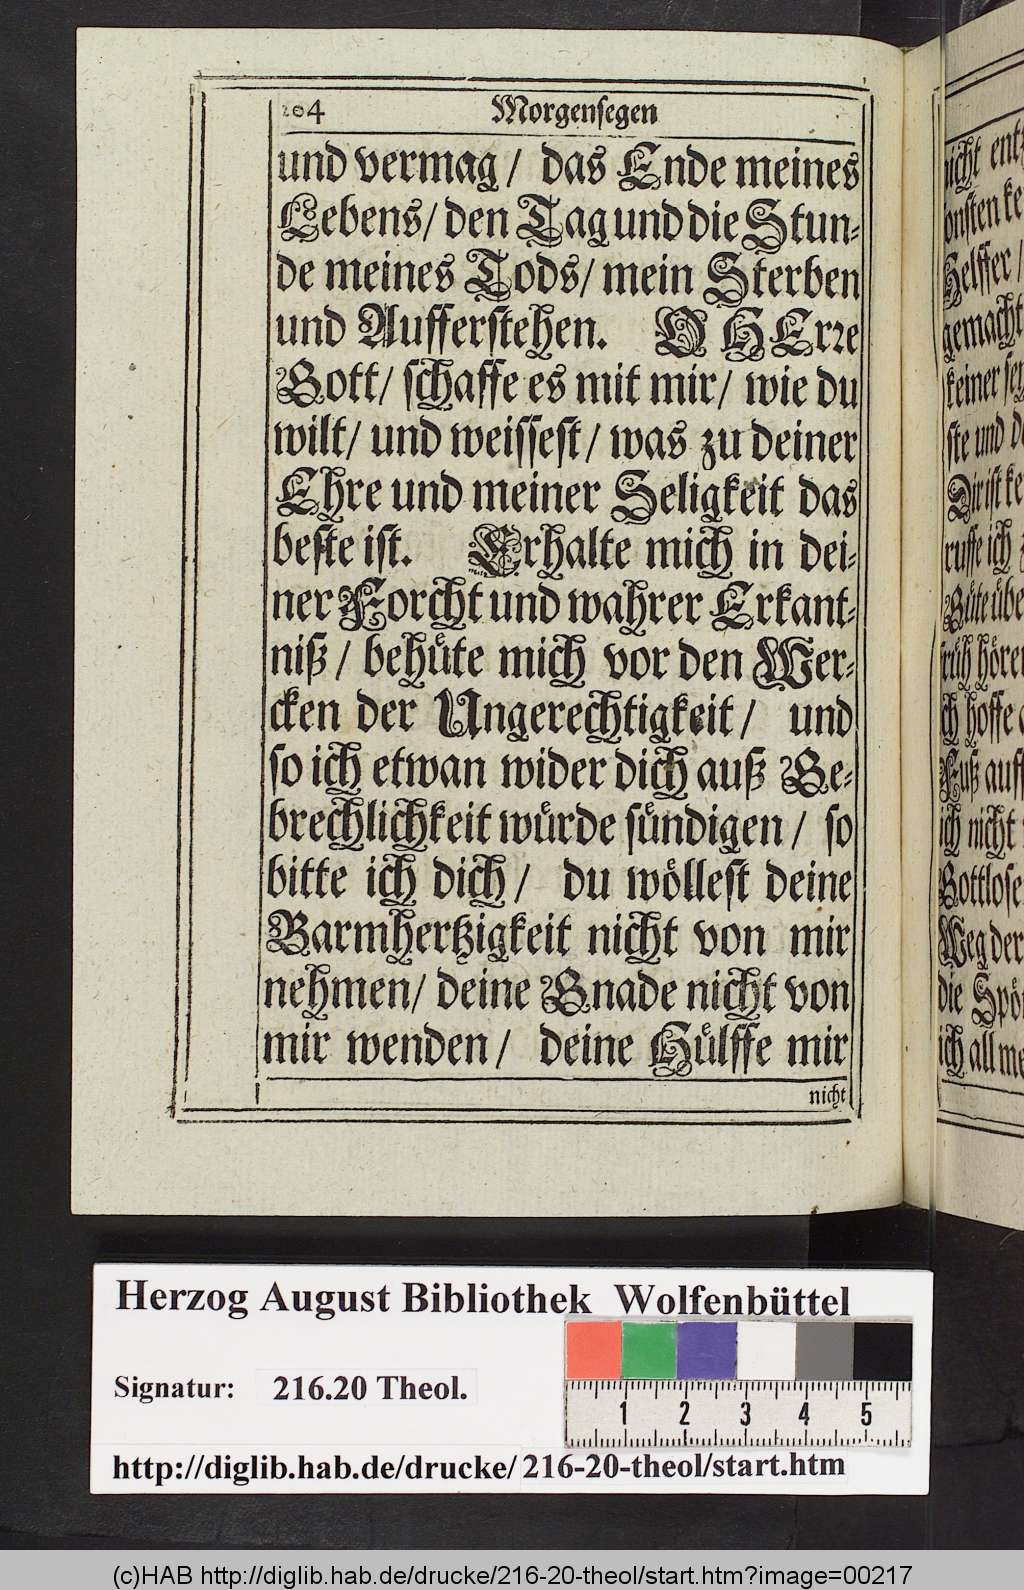 204 Morgensegen
und vermag / das Ende meines
Lebens / den Tag und die Stun-
de meines Tods / mein Sterben
und Aufferstehen. O HErre
Gott / schaffe es mit mir / wie du
wilt / und weissest / was zu deiner
Ehre und meiner Seligkeit das
beste ist. Erhalte mich in dei-
ner Forcht und wahrer Erkant-
niß / behüte mich vor den Wer-
cken der Ungerechtigkeit / und
so ich etwan wider dich auß Ge-
brechlichkeit würde sündigen / so
bitte ich dich / du wöllest deine
Barmhertzigkeit nicht von mir
nehmen / deine Gnade nicht von
mir wenden / deine Hülffe mir
nicht
nicht
Helffer /
gemacht
ste und
rufte ich
früh
ich hoffe
Fuß
ich nicht
Weg der
die
ich all
Herzog August Bibliothek Wolfenbüttel
Signatur: 216.20 Theol.
1 2 3 4 5
http://diglib.hab.de/drucke/216-20-theol/start.htm
(c)HAB http://diglib.hab.de/drucke/216-20-theol/start.htm?image=00217